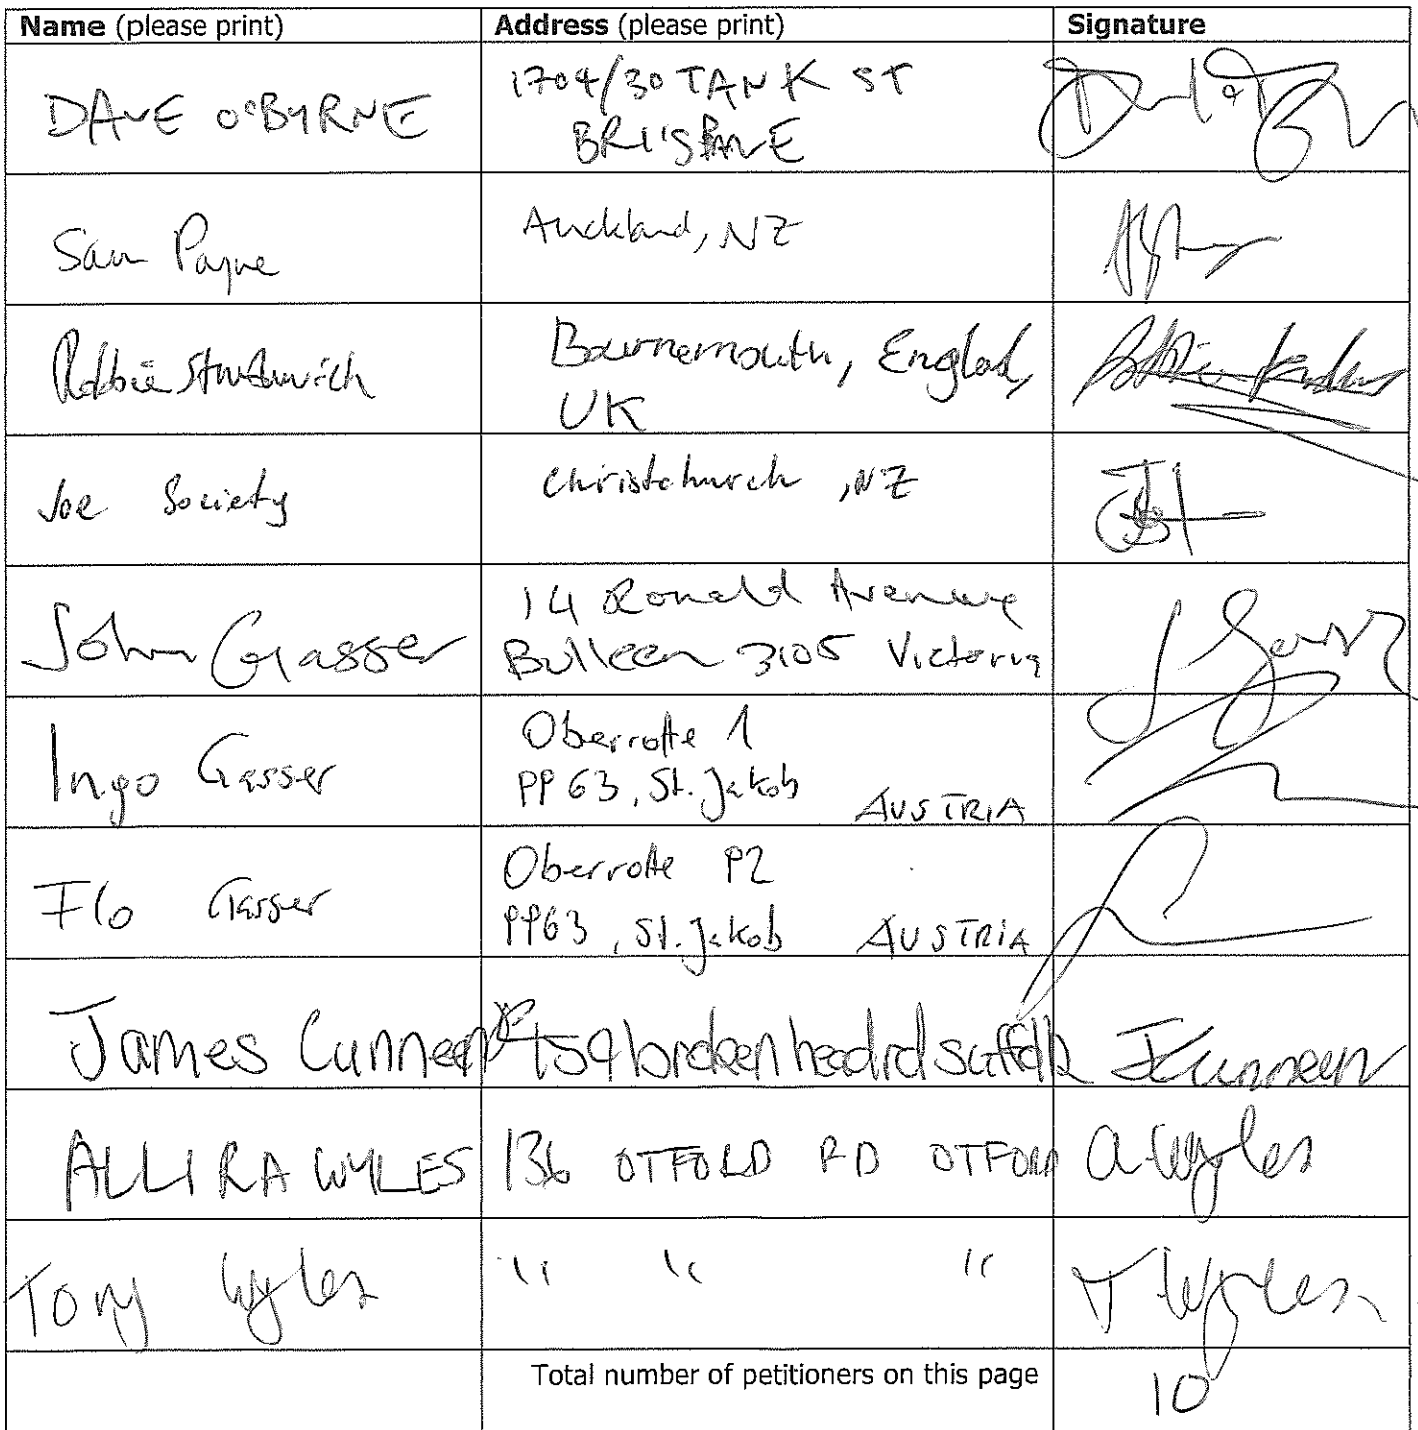 Name (please print) Address (please print) Signature
DAVE O'BYRNE 1704/30 TANK ST
BRISBANE
Sam Payne Auckland, NZ
Robbie Bournemouth, Englad,
UK
Joe Society Christchurch, NZ
John Gasser 14 Ronald Avenue
Bulleen 3105 Victoria
Ingo Gasser Oberrotte 1
PP 63, St. Jakob AUSTRIA
Flo Gasser Oberrotte P2
PP63, St. Jakob AUSTRIA
James Cunneen 459 broken head rd suffolk J Cunneen
ALLIRA WYLES 136 OTFORD RD OTFORD a Wyles
Tony Wyles " " " T Wyles
Total number of petitioners on this page 10